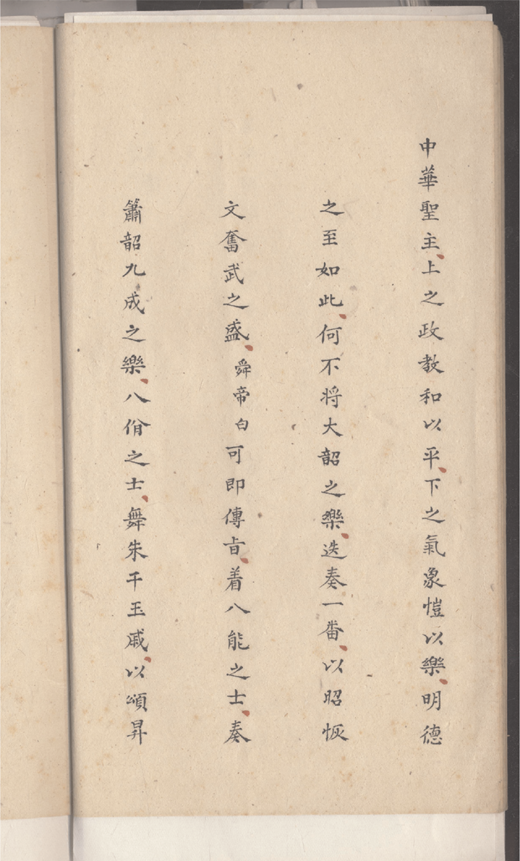 中華聖主、上之政教和以平、下之氣象愷以樂、明德
之至如此、何不將大韶之樂、迭奏一番、以昭恢
文奮武之盛、舜帝白可即傳旨、着八能之士、奏
簫韶九成之樂、八佾之士、舞朱干玉戚、以頌昇